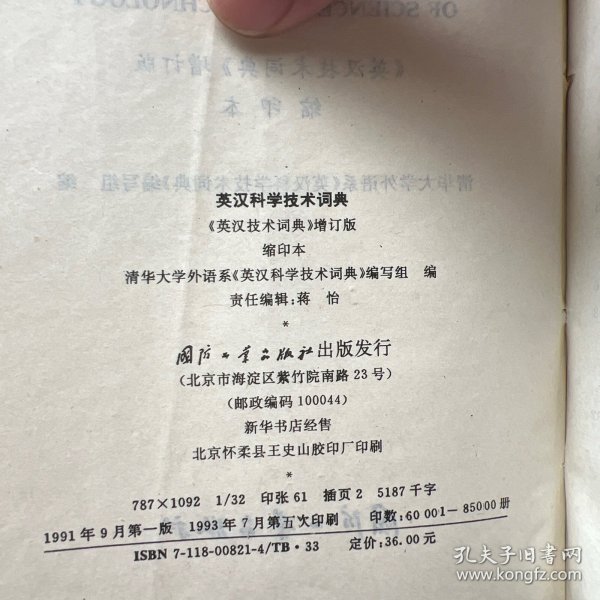 OF SCIENCE
CHNOLOGY
《英汉技术词典》增订版
缩印本
清华大学外语系《英汉科学技术词典》编写组 编
英汉科学技术词典
《英汉技术词典》增订版
缩印本
清华大学外语系《英汉科学技术词典》编写组 编
责任编辑:蒋 怡
*
国防工业出版社出版发行
(北京市海淀区紫竹院南路23号)
(邮政编码 100044)
新华书店经售
北京怀柔县王史山胶印厂印刷
*
787×1092 1/32 印张61 插页2 5187千字
1991年9月第一版 1993年7月第五次印刷 印数:60 001—85000册
ISBN 7-118-00821-4/TB·33 定价:36.00元
孔夫子旧书网
www.kongfz.com